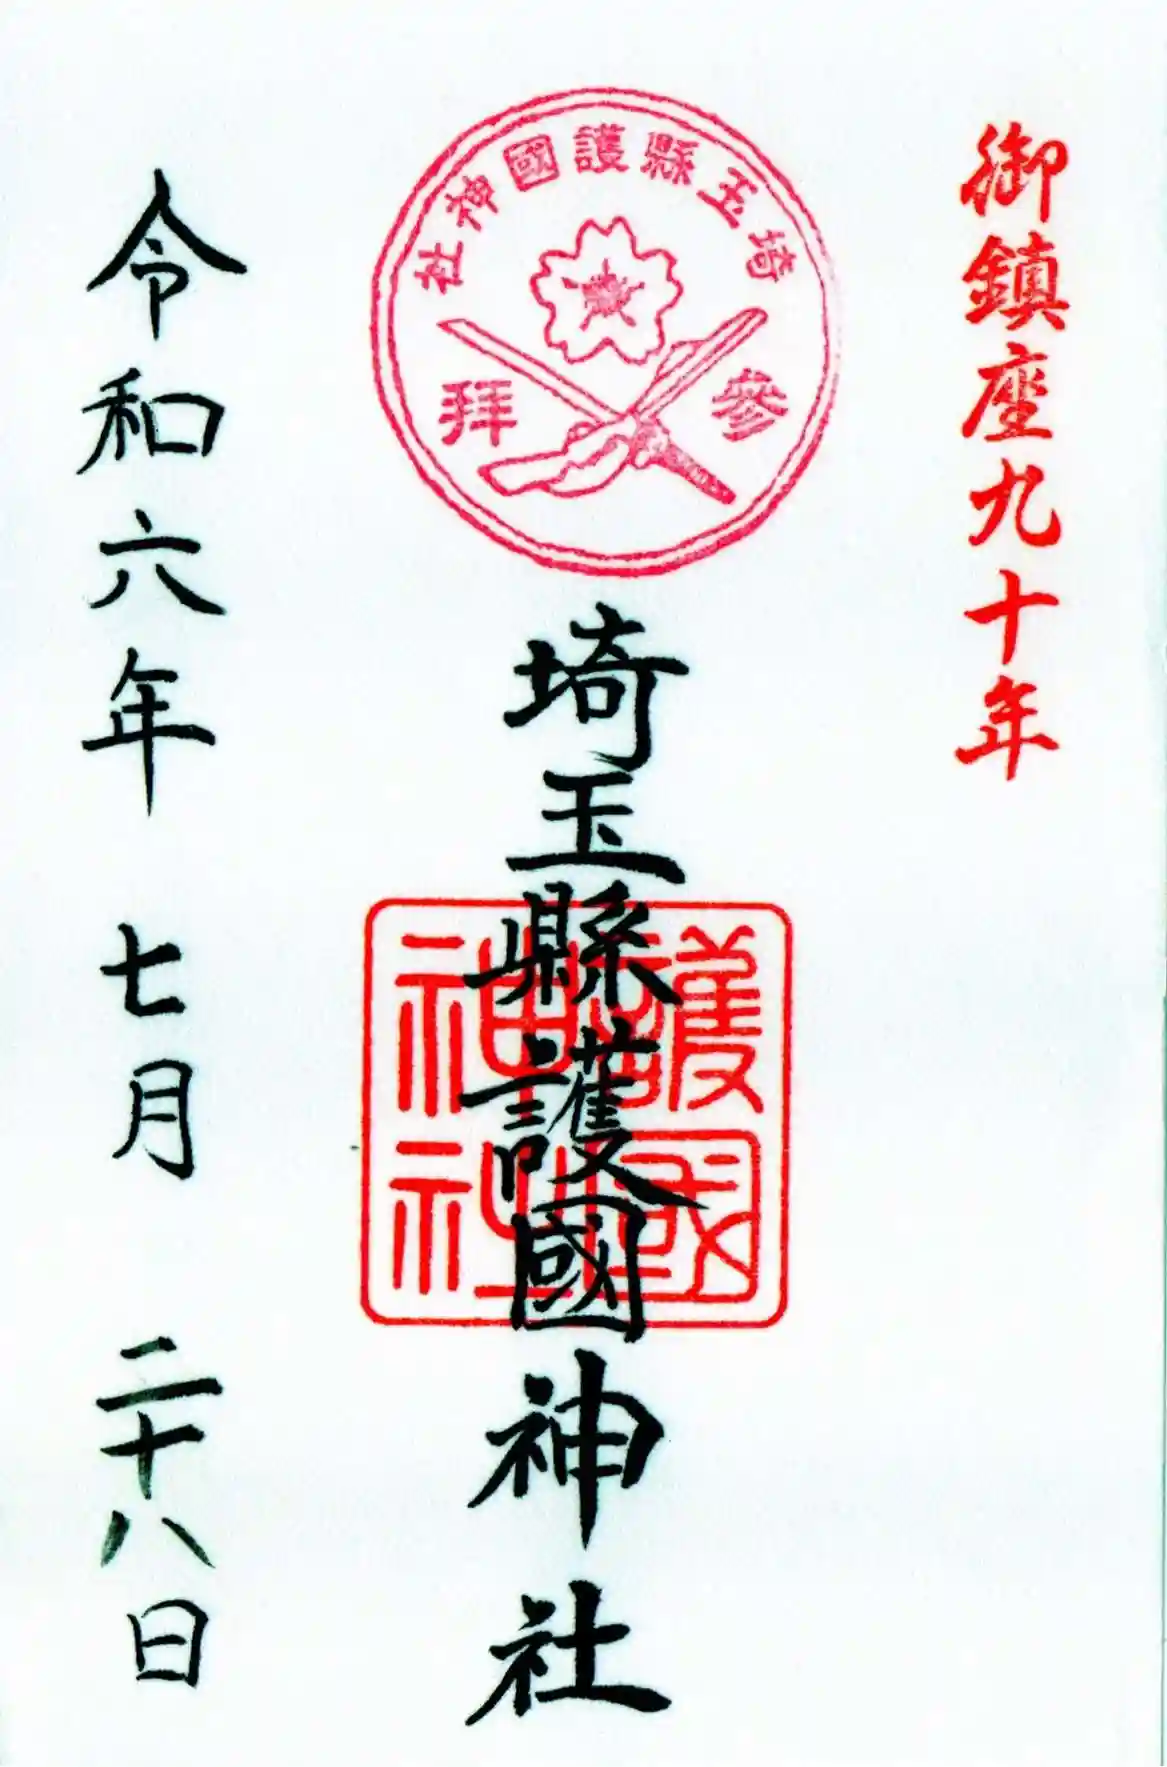 御鎮座九十年
埼玉縣護國神社
參拜
埼玉縣護國神社
護國神社
令和六年 七月 二十八日